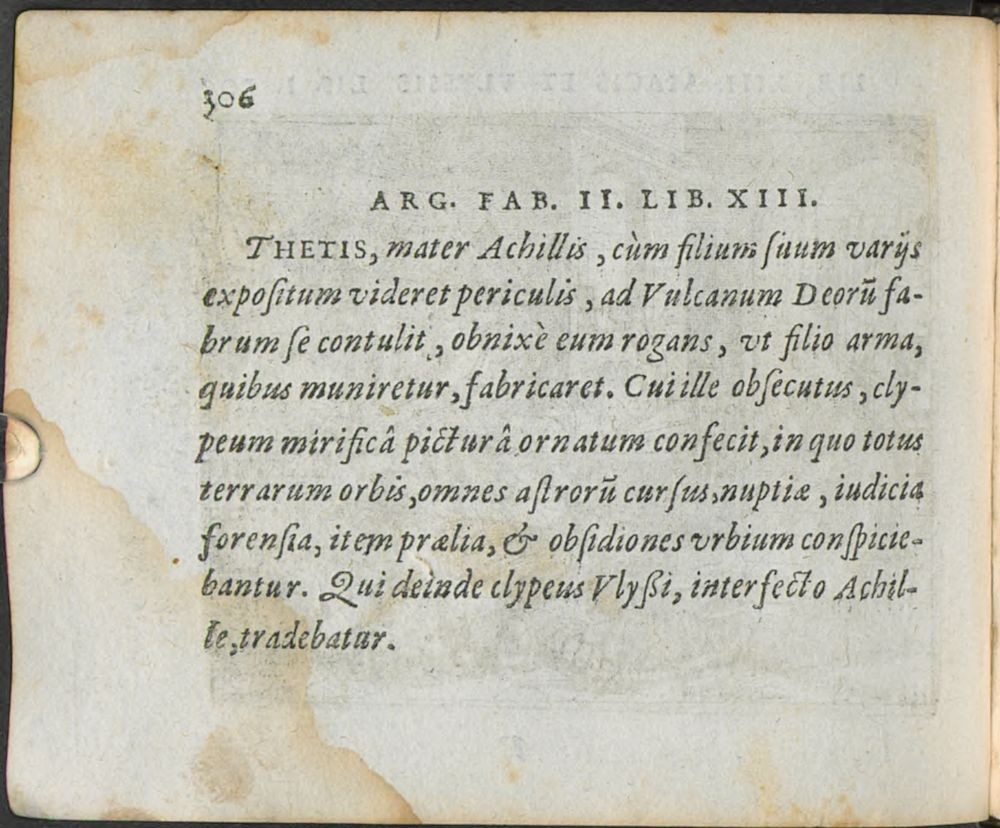 306
ARG. FAB. II. LIB. XIII.
THETIS, mater Achillis, cùm filium ſuum varijs
expoſitum videret periculis, ad Vulcanum Deorū fa-
brum ſe contulit, obnixè eum rogans, vt filio arma,
quibus muniretur, fabricaret. Cui ille obſecutus, cly-
peum mirificâ picturâ ornatum confecit, in quo totus
terrarum orbis, omnes aſtrorū curſus, nuptiæ, iudicia
forenſia, item prælia, & obſidiones vrbium conſpicie-
bantur. Qui deinde clypeus Vlyßi, interfecto Achil-
le, tradebatur.